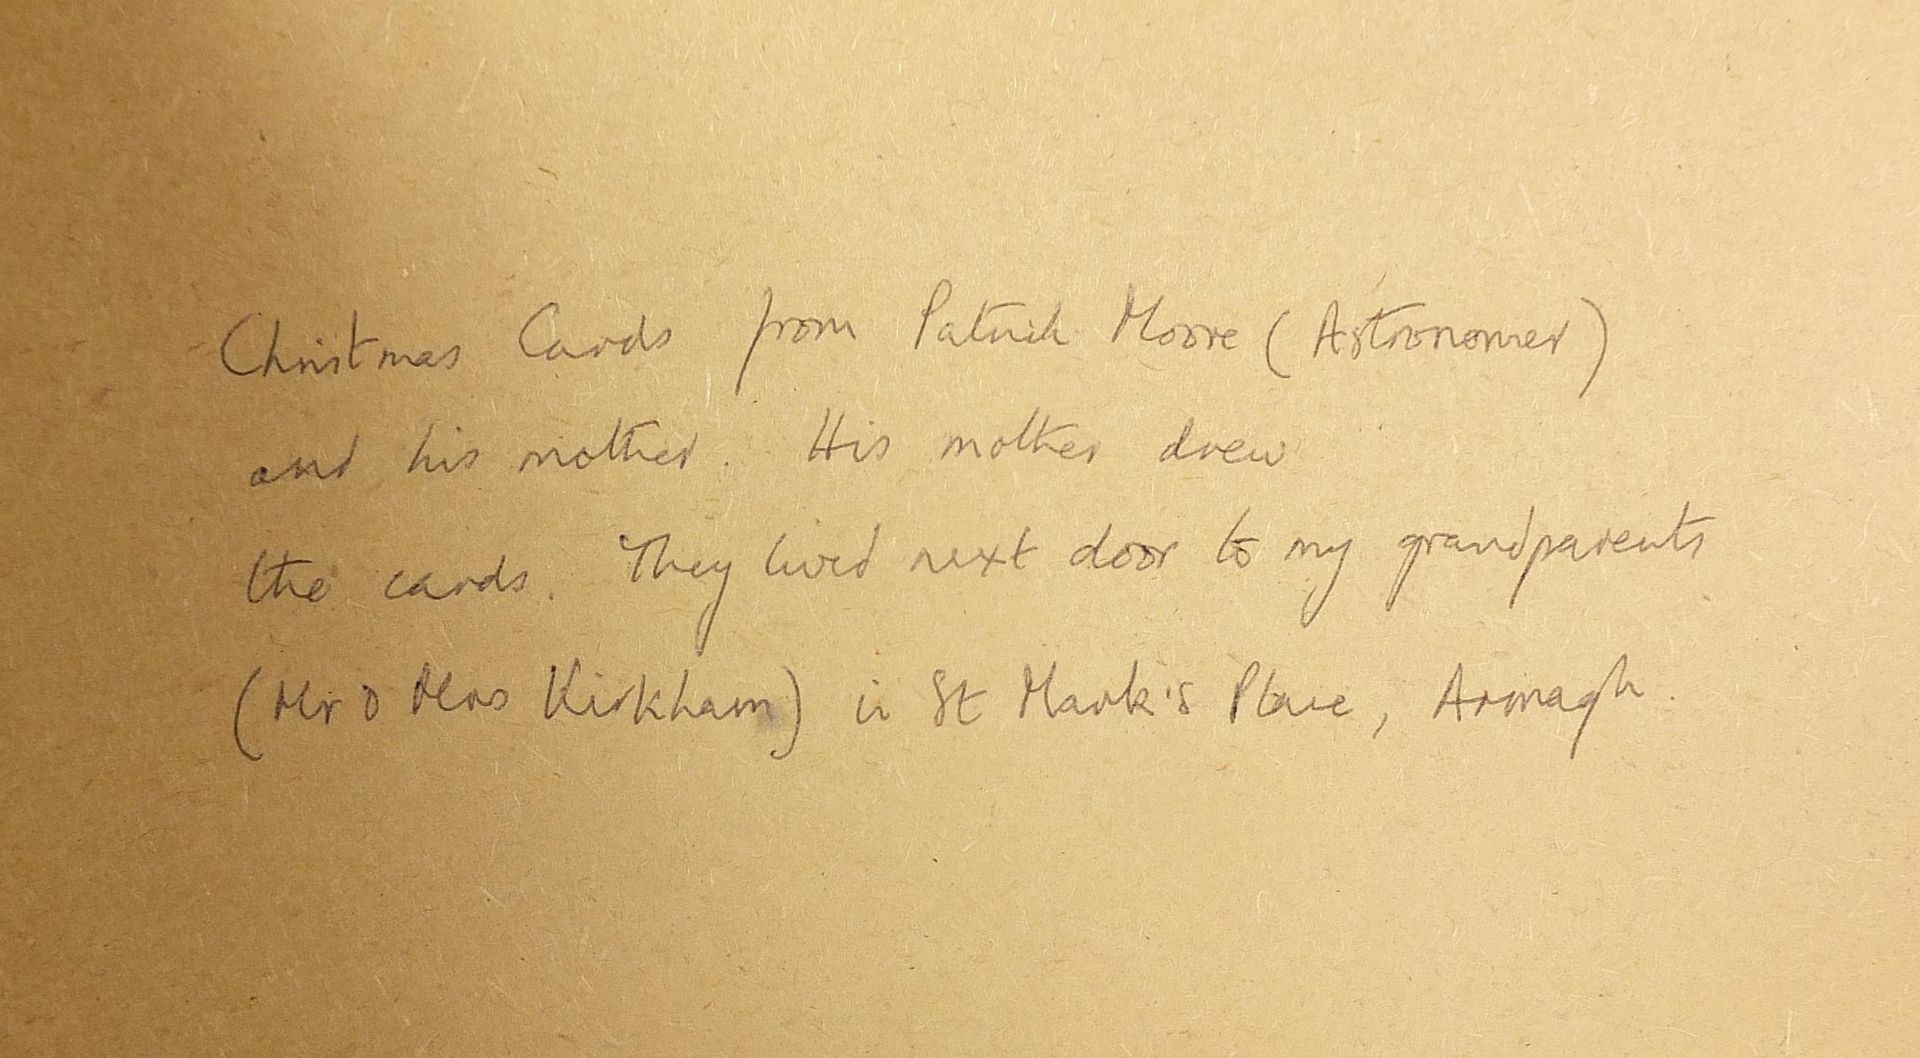 Christmas Cards from Patrick Moore (Astronomer)
and his mother. His mother drew
the cards. They lived next door to my grandparents
(Mr & Mrs Kirkham) in St Mark's Place, Armagh.